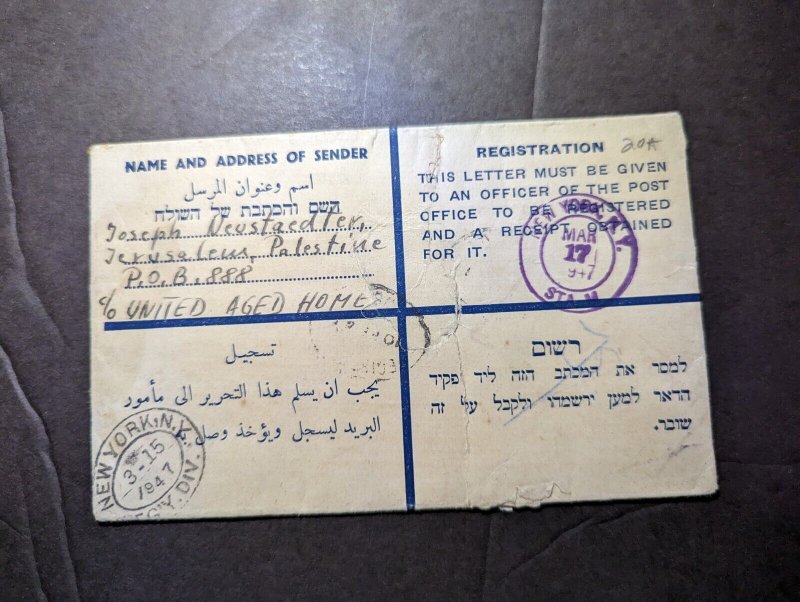 NAME AND ADDRESS OF SENDER
اسم وعنوان المرسل
השם והכתבת של השולח
Joseph Neustaedter,
Jerusalem, Palestine
P.O.B. 888
c/o UNITED AGED HOME
REGISTRATION
THIS LETTER MUST BE GIVEN
TO AN OFFICER OF THE POST
OFFICE TO BE REGISTERED
AND A RECEIPT OBTAINED
FOR IT.
YORK, N.Y.
MAR
17
1947
STA. M
تسجيل
يجب ان يسلم هذا التحرير الى مأمور
البريد ليسجل ويؤخذ وصل به
רשום
למסר את המכתב הזה ליד פקיד
הדאר למען ירשמהו ולקבל על זה
שובר.
NEW YORK, N.Y.
3-15
1947
DIV.